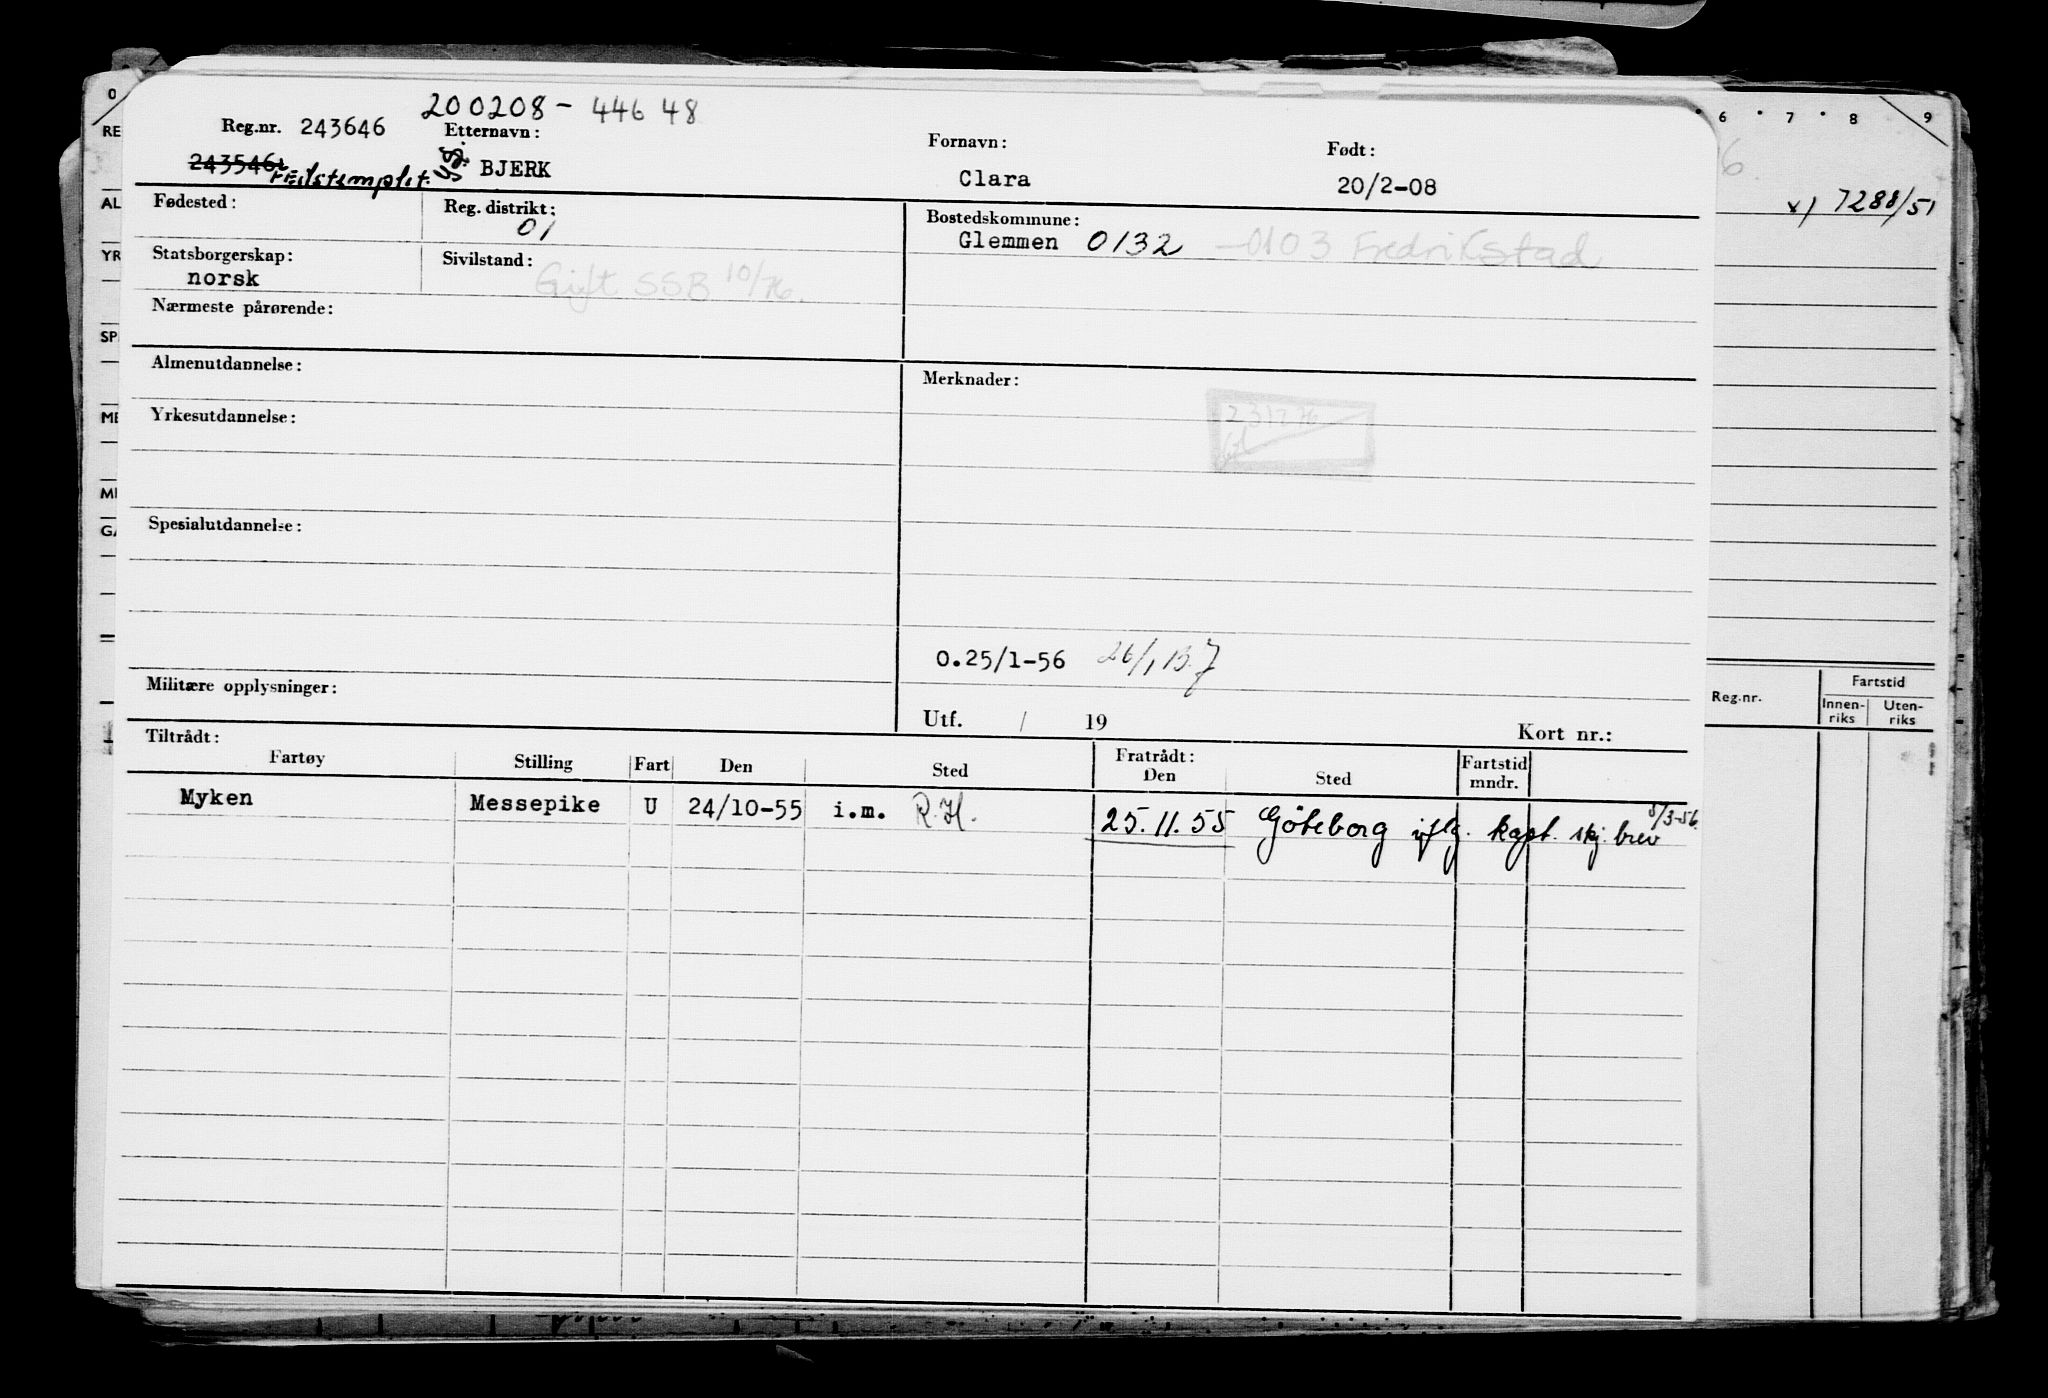 200208 - 446 48
Reg.nr. 243646 Etternavn: Fornavn: Født:
243546 Feilstemplet. BJERK Clara 20/2-08
Fødested: Reg. distrikt: 01 Bostedskommune:
Glemmen 0132 - 0103 Fredrikstad
Statsborgerskap: Sivilstand:
norsk Gift SSB 10/76.
Nærmeste pårørende:
Almenutdannelse: Merknader:
Yrkesutdannelse:
Spesialutdannelse:
0.25/1-56 26/1
Militære opplysninger:
Utf. / 19 Kort nr.:
Tiltrådt: Fratrådt:
Fartøy Stilling Fart Den Sted Den Sted Fartstid mndr.
Myken Messepike U 24/10-55 i.m. R.H. 25.11.55 Göteborg iflg. kapt. skj. brev 5/3-56.
0
RE
AL
YR
SP
ME
MI
GA
6 7 8 9
x) 7288/51
Reg.nr. Fartstid
Innen-riks Uten-riks